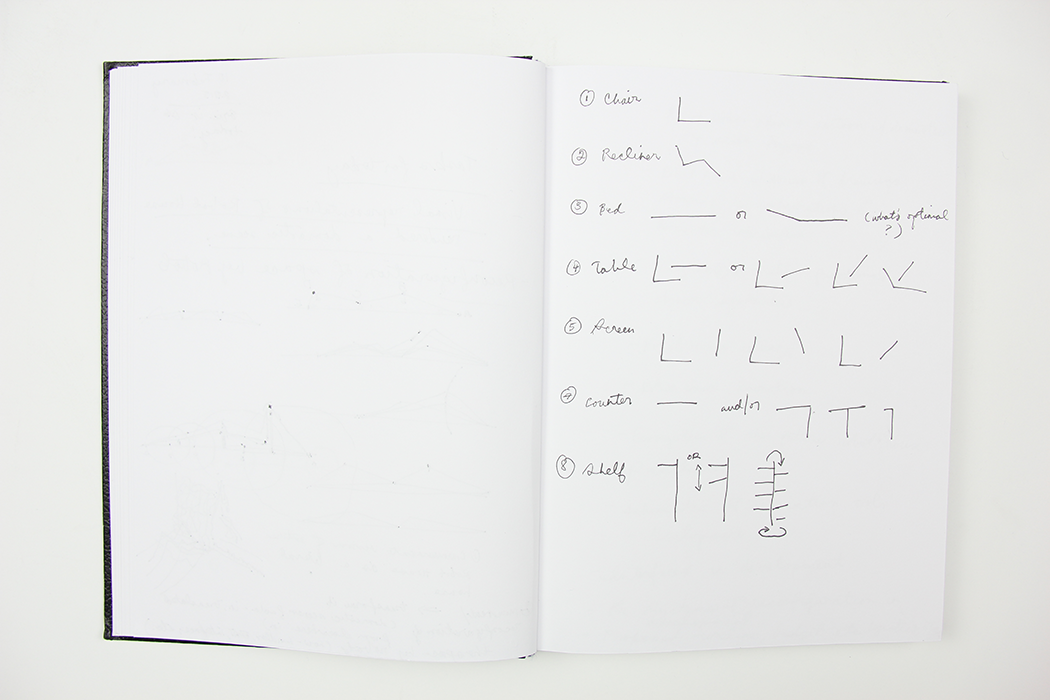 ① Chair
② Recliner
③ Bed or (what's optimal
?)
④ Table or
⑤ Screen
counter and/or
⑧ Shelf OR